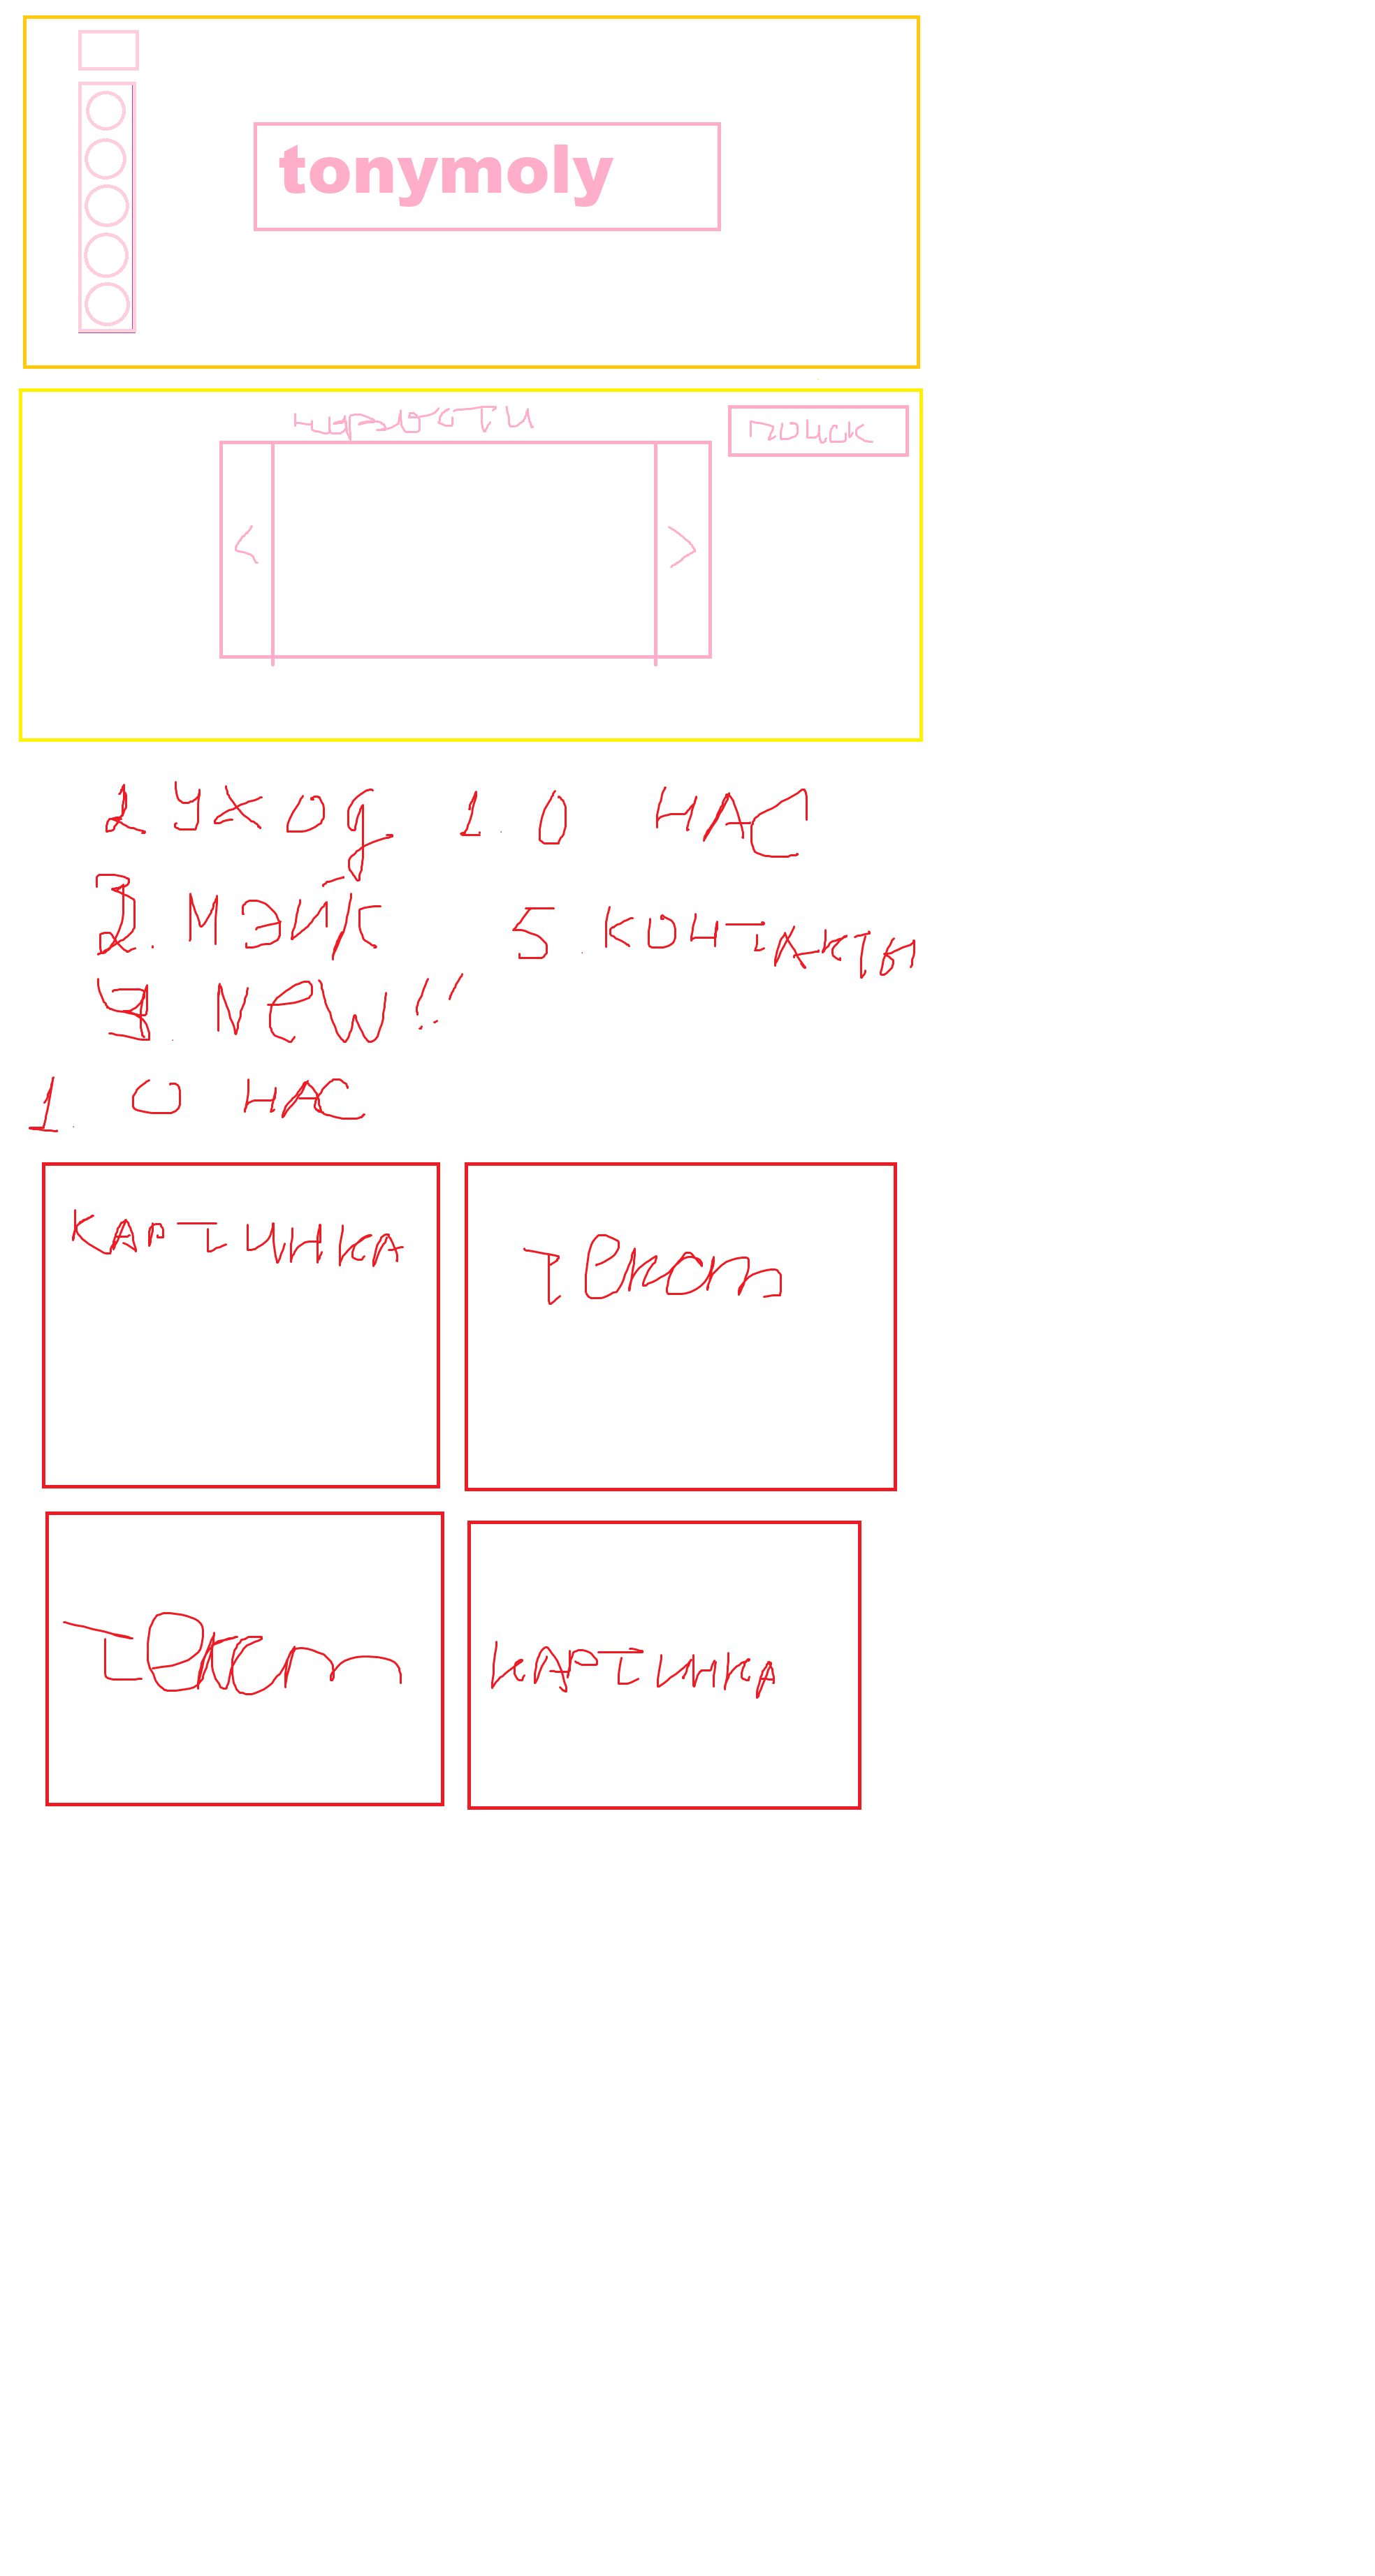 tonymoly
новости
поиск
< >
2 уход 1. О НАС
3. мэйк 5. контакты
4. New!!
1. О НАС
картинка
текст
текст
картинка